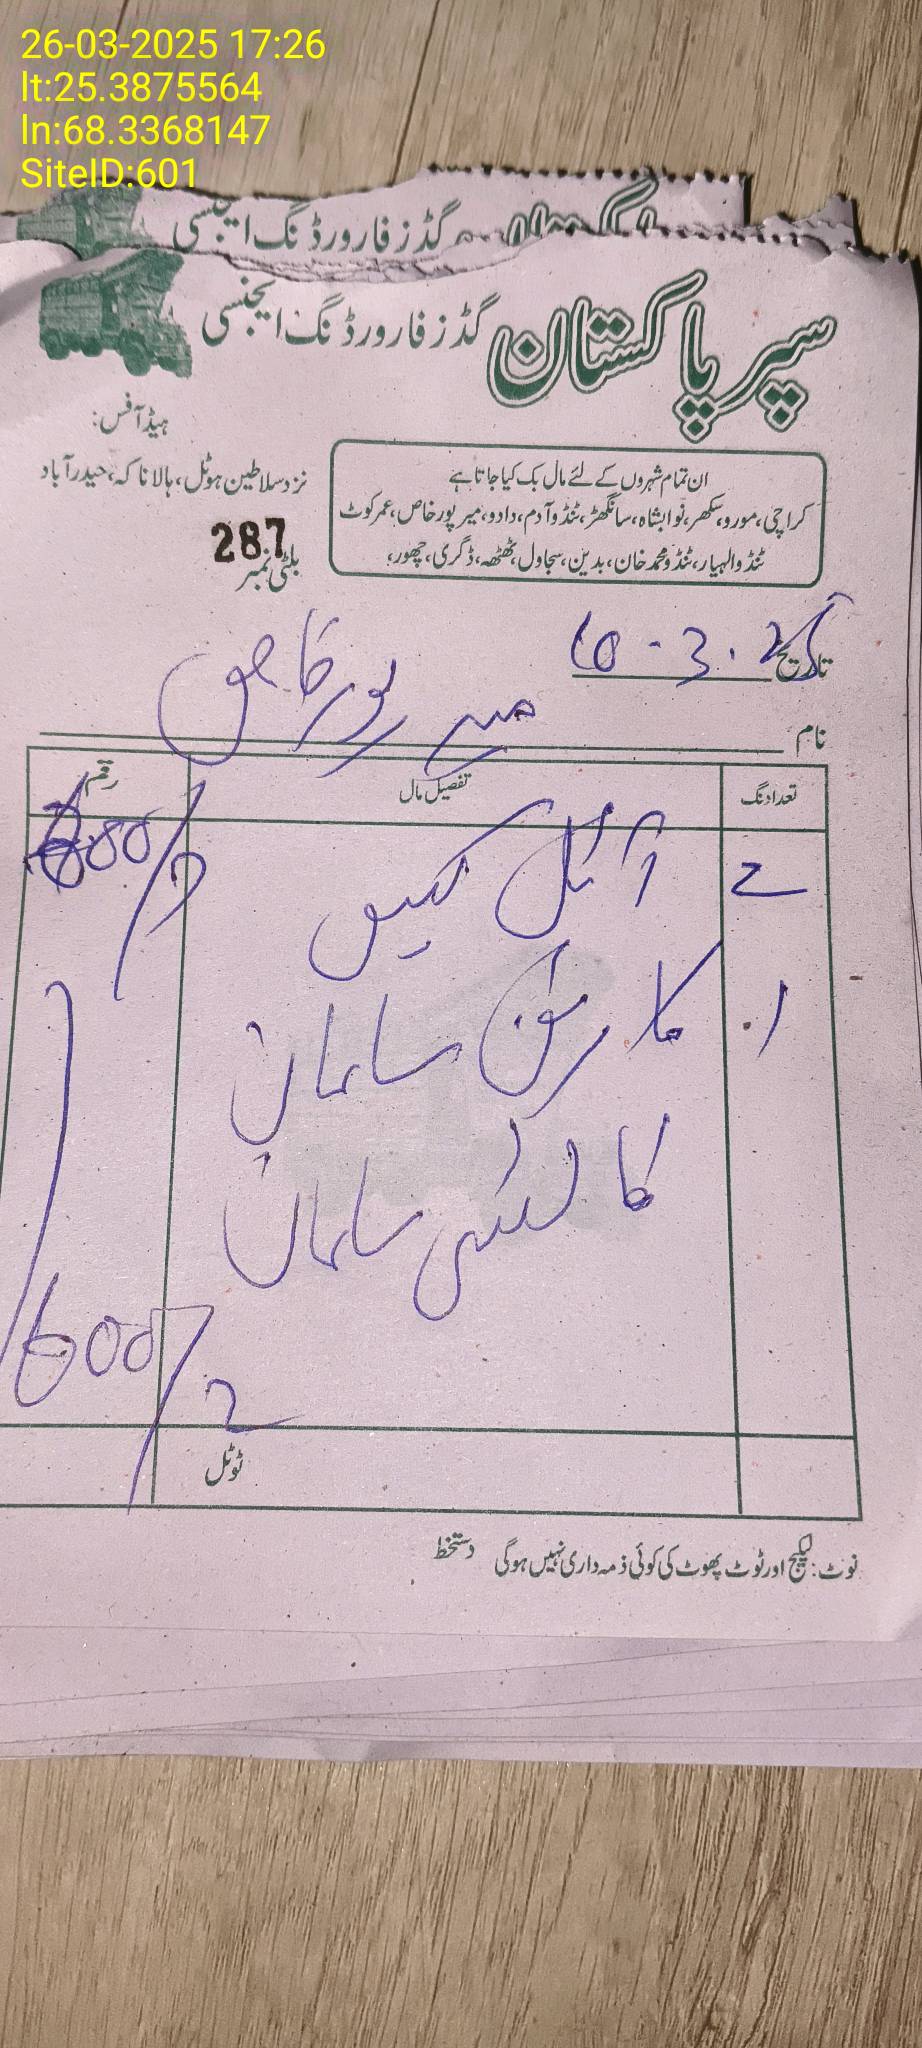 26-03-2025 17:26
lt:25.3875564
ln:68.3368147
SiteID:601
گڈز فارورڈنگ ایجنسی
سپر پاکستان گڈز فارورڈنگ ایجنسی
ہیڈ آفس:
نزد سلاطین ہوٹل، ہالا ناکہ، حیدرآباد
ان تمام شہروں کے لئے مال بک کیا جاتا ہے
کراچی، مورو، سکھر، نوابشاہ، سانگھڑ، ٹنڈو آدم، دادو، میرپور خاص، عمرکوٹ
ٹنڈوالہیار، ٹنڈو محمد خان، بدین، سجاول، ٹھٹھہ، ڈگری، چھور،
بلٹی نمبر 287
تاریخ 10-3-25
نام میرپور خاص
تعداد نگ تفصیل مال رقم
2 آئل کیس
1 کارٹن سامان
سامان
600/
ٹوٹل
نوٹ: لیکیج اور ٹوٹ پھوٹ کی کوئی ذمہ داری نہیں ہوگی دستخط